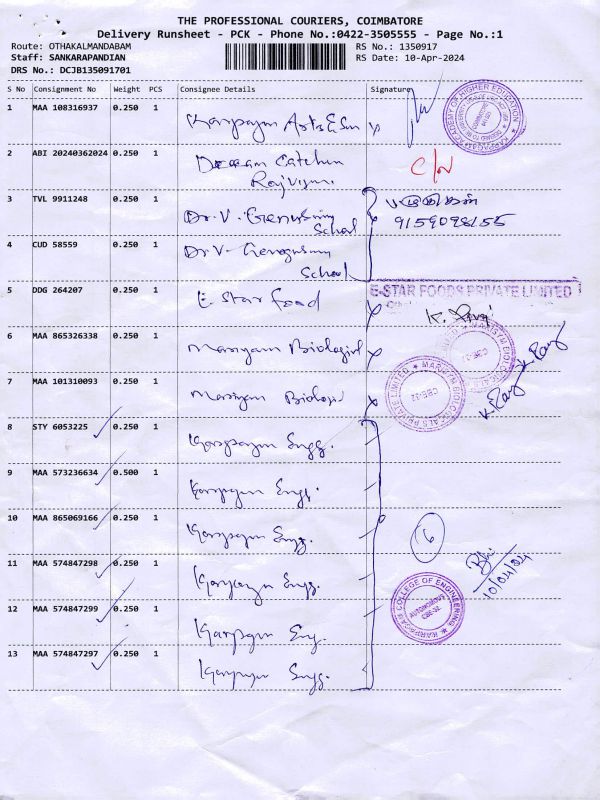 THE PROFESSIONAL COURIERS, COIMBATORE
Delivery Runsheet - PCK - Phone No.:0422-3505555 - Page No.:1
Route: OTHAKALMANDABAM
RS No.: 1350917
Staff: SANKARAPANDIAN
RS Date: 10-Apr-2024
DRS No.: DCJB135091701
S No Consignment No Weight PCS Consignee Details Signature
1 MAA 108316937 0.250 1 Karpagam Arts &
KARPAGAM ACADEMY OF HIGHER EDUCATION
2 ABI 20240362024 0.250 1
3 TVL 9911248 0.250 1 Dr. V. School
9159098155
4 CUD 58559 0.250 1 Dr V. School
5 DDG 264207 0.250 1 E Star Food
E-STAR FOODS PRIVATE LIMITED
6 MAA 865326338 0.250 1 Mariyam
7 MAA 101310093 0.250 1 Mariyam
8 STY 6053225 0.250 1 Karpagam Engg.
9 MAA 573236634 0.500 1 Karpagam Engg.
10 MAA 865069166 0.250 1 Karpagam Engg.
6
11 MAA 574847298 0.250 1 Karpagam Engg.
10/04/24
12 MAA 574847299 0.250 1 Karpagam Eng.
KARPAGAM COLLEGE OF ENGINEERING
AUTONOMOUS
CBE-32
13 MAA 574847297 0.250 1 Karpagam Engg.